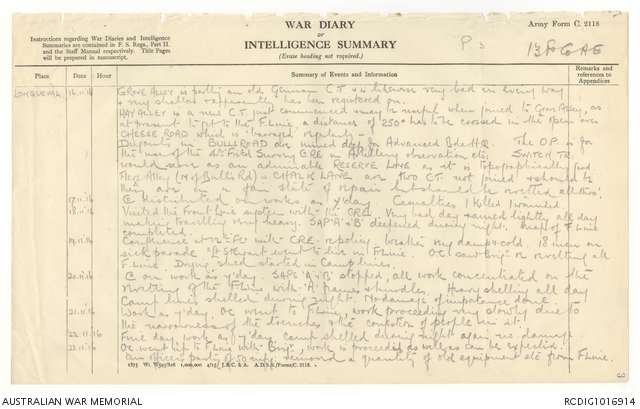 WAR DIARY
or
INTELLIGENCE SUMMARY
(Erase heading not required.)
Army Form C. 2118
Instructions regarding War Diaries and Intelligence
Summaries are contained in F. S. Regs., Part II.
and the Staff Manual respectively. Title Pages
will be prepared in manuscript.
P 3
Place
Date
Hour
Summary of Events and Information
Remarks and
references to
Appendices
16.11.16 GROVE ALLEY is partly an old German C.T. & is likewise very bad in every way
& very shallow & apparently has been registered on.
HAY ALLEY is a new C.T. just commenced & may be useful when joined to Grove Alley, as
at present to get to the F. Line a distance of 250x has to be crossed in the open over
CHEESE ROAD which is barraged regularly -
Dugouts in BULLS ROAD are mined deep for Advanced Bde HQ. The O.P. is for
the use of the Field Survey CRE in Artillery observation etc. SWITCH TR.
would serve as an admirable RESERVE LINE as it is topographically good
Flers Alley (N of Bulls Rd) & CHALK LANE are two CT not joined & should be
they are in a fair state of repair but should be revetted all thro'
17.11.16 C distributed on works as y'day Casualties 1 killed 1 wounded.
18.11.16 Visited the Front Line system with the CRE. Very bad day rained lightly all day
making travelling very heavy. SAP 'A' & 'B' deepened during night. Recap of F Line
completed
19.11.16 Conference at with CRE re policy. Weather very damp & cold. 18 men on
sick parade. Lt went to live in F Line. OC saw Brig re revetting all
F Line. Drying shed started in Camp lines
20.11.16 C on work as y'day. SAPS 'A' & 'B' stopped, all work concentrated on the
revetting of the F Line with 'A' frames & hurdles. Heavy shelling all day
Camp lines shelled during night. No damage of importance done.
21.11.16 Work as y'day. OC went to F Line, work proceeding very slowly due to
the narrowness of the trenches & the congestion of people in it.
22.11.16 Fine day, work as y'day Camp shelled during night again no damage
23.11.16 OC went up to F Line with Brig, work is proceeding as well as can be expected.
An officers party of 50 removed a quantity of old equipment etc from F Line.
1,000,000 4/15 J.B.C. & A. A.D.S.S./Forms/C. 2118.
AUSTRALIAN WAR MEMORIAL
RCDIG1016914